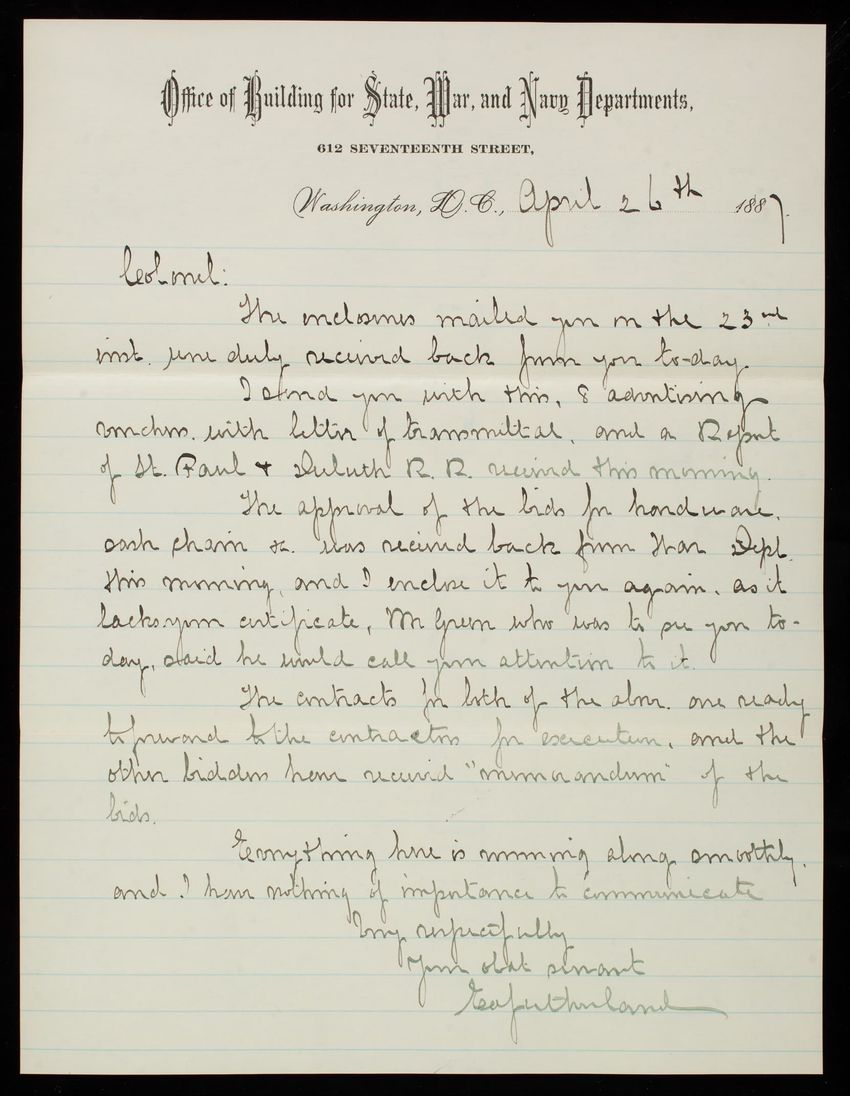 Office of Building for State, War, and Navy Departments,
612 SEVENTEENTH STREET,
Washington, D.C., April 26th 1887.
Colonel:
The enclosures mailed you on the 23rd
inst. were duly received back from you to-day.
I send you with this, 8 advertising
vouchers, with letter of transmittal, and a Report
of St. Paul & Duluth R. R. received this morning.
The approval of the bids for hardware,
sash chain &c. was received back from War Dept.
this morning, and I enclose it to you again, as it
lacks your certificate, Mr Green who was to see you to-
day, said he would call your attention to it.
The contracts for both of the above are ready
to forward to the contractors for execution, and the
other bidders have received "memorandum" of the
bids.
Everything here is running along smoothly,
and I have nothing of importance to communicate
Very respectfully
Your obdt servant
Sutherland